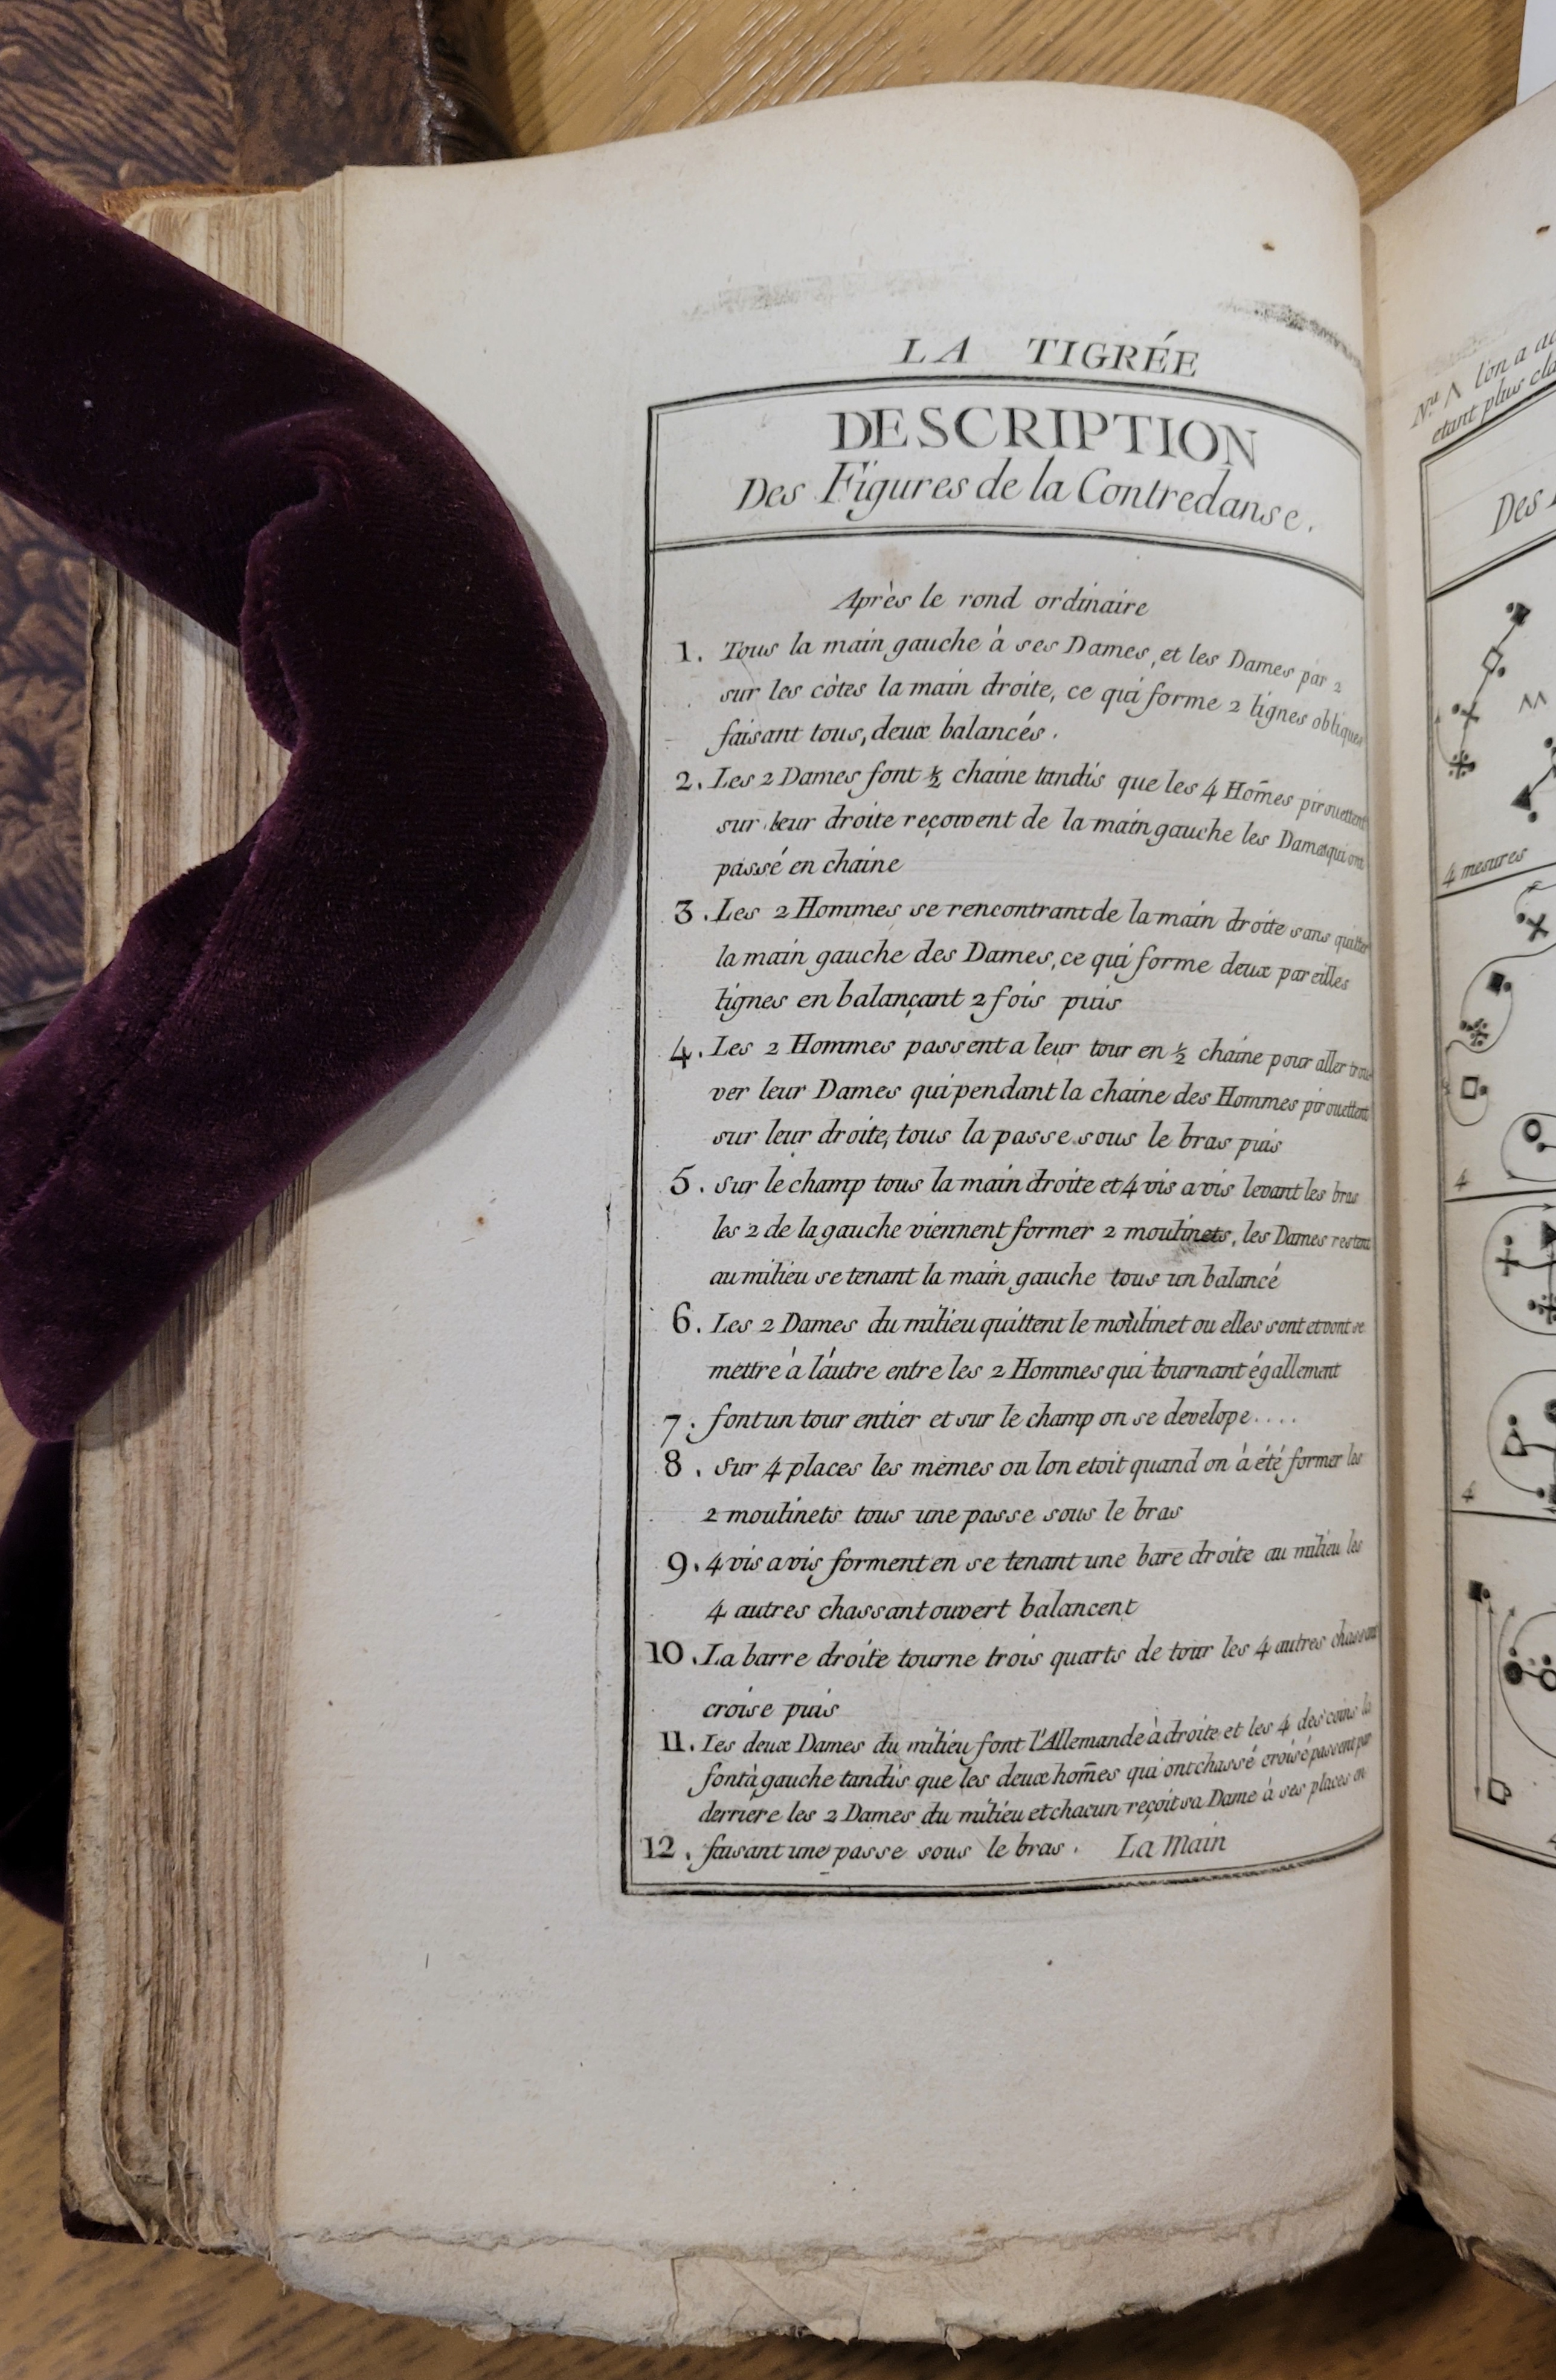 LA TIGRÉE
DESCRIPTION
Des Figures de la Contredanse.
Après le rond ordinaire
1. Tous la main gauche à ses Dames, et les Dames par 2
sur les côtes la main droite, ce qui forme 2 lignes obliques
faisant tous, deux balancés.
2. Les 2 Dames font ½ chaine tandis que les 4 Hom̄es pirouettent
sur leur droite reçowent de la main gauche les Dames qui ont
passé en chaine
3. Les 2 Hommes se rencontrant de la main droite sans quitter
la main gauche des Dames, ce qui forme deux pareilles
lignes en balançant 2 fois puis
4. Les 2 Hommes passent a leur tour en ½ chaine pour aller trou
ver leur Dames qui pendant la chaine des Hommes pirouettent
sur leur droite, tous la passe sous le bras puis
5. Sur le champ tous la main droite et 4 vis a vis levant les bras
les 2 de la gauche viennent former 2 moulinets, les Dames restent
au milieu se tenant la main gauche tous un balancé
6. Les 2 Dames du milieu quittent le moulinet ou elles sont et vont se
mettre à l'autre entre les 2 Hommes qui tournant égallement
7. font un tour entier et sur le champ on se develope....
8. Sur 4 places les mêmes ou lon etoit quand on à été former les
2 moulinets tous une passe sous le bras
9. 4 vis a vis forment en se tenant une bare droite au milieu les
4 autres chassant ouvert balancent
10. La barre droite tourne trois quarts de tour les 4 autres chassant
croise puis
11. Les deux Dames du milieu font l'Allemande à droite et les 4 des coins la
font à gauche tandis que les deux hom̄es qui ont chassé croisé passent par
derriere les 2 Dames du milieu et chacun reçoit sa Dame à ses places en
12. faisant une passe sous le bras. La Main
N.ta Λ l'on a
etant plus
Des
4 mesures
4
4